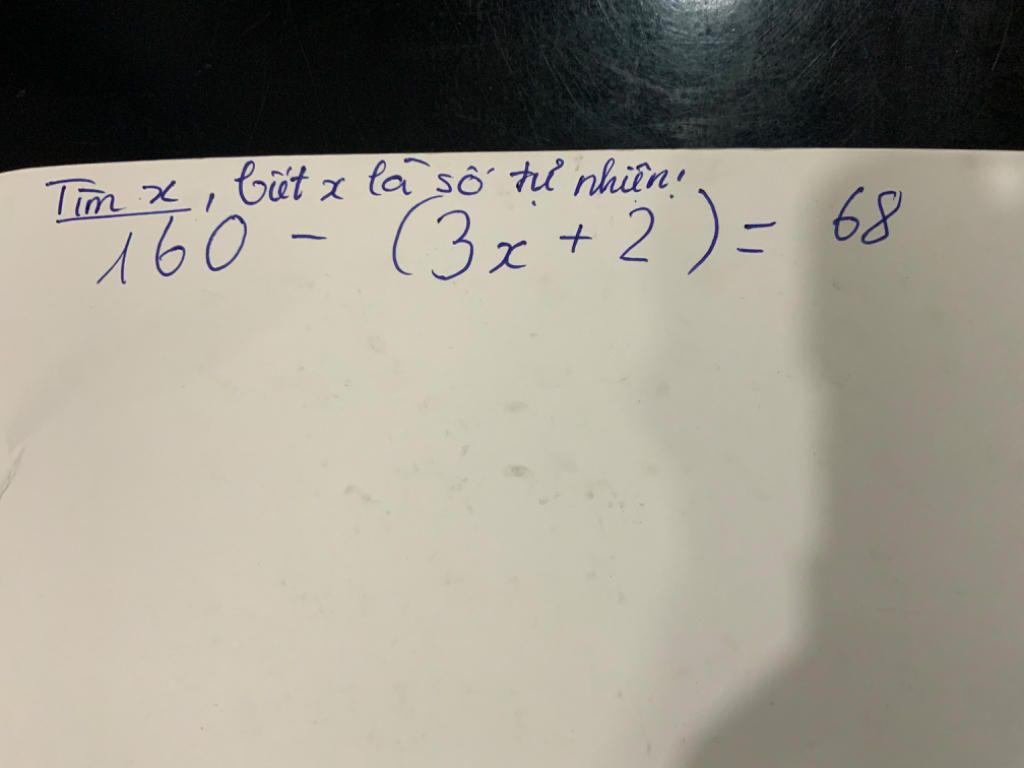 Tìm x, biết x là số tự nhiên!
160 - (3x + 2) = 68